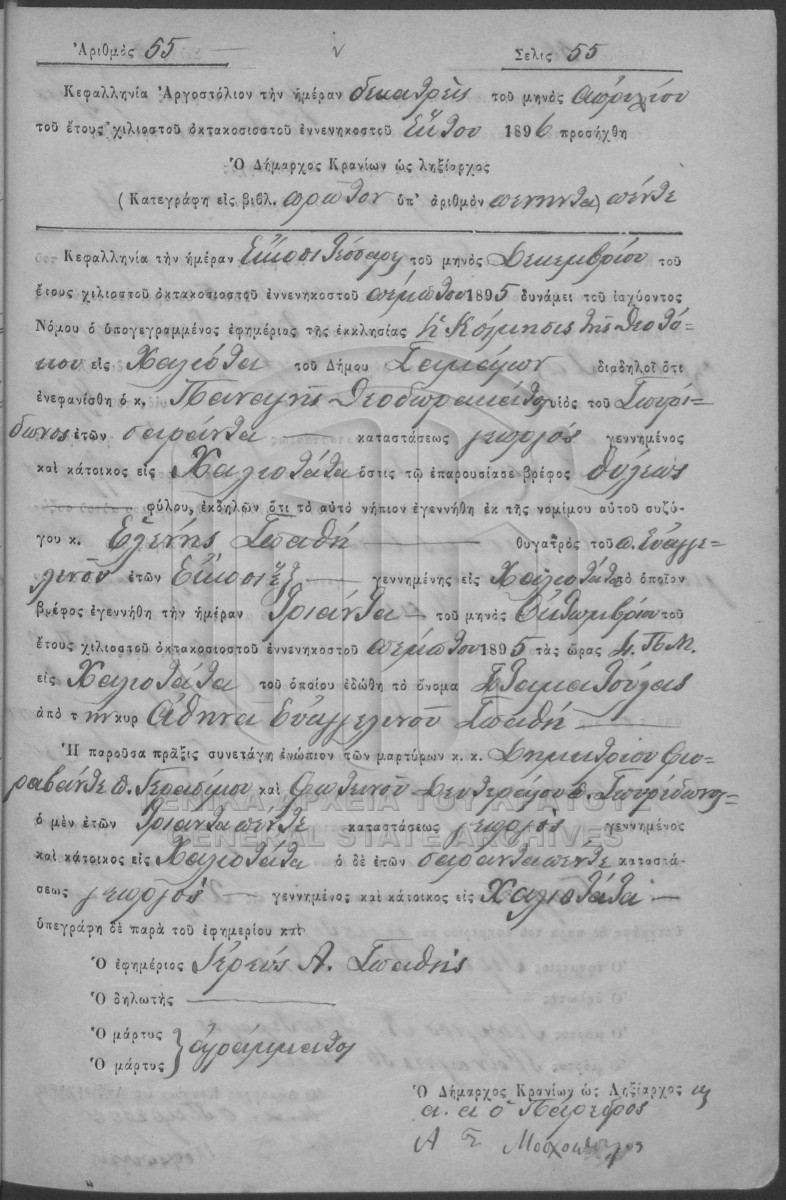 Ἀριθμὸς 55 Σελις 55
Κεφαλληνία Ἀργοστόλιον τὴν ἡμέραν δεκατρεῖς τοῦ μηνὸς Ἀπριλίου
τοῦ ἔτους χιλιοστοῦ ὀκτακοσιοστοῦ ἐννενηκοστοῦ ἕκτου 1896 προσήχθη
Ὁ Δήμαρχος Κρανίων ὡς ληξίαρχος
(Κατεγράφη εἰς βιβλ. πρῶτον ὑπ' ἀριθμὸν πενηντα) πέντε
Κεφαλληνία τὴν ἡμέραν Εἴκοσι τέσσαρες τοῦ μηνὸς Δεκεμβρίου τοῦ
ἔτους χιλιοστοῦ ὀκτακοσιοστοῦ ἐννενηκοστοῦ πέμπτου 1895 δυνάμει τοῦ ἰσχύοντος
Νόμου ὁ ὑπογεγραμμένος ἐφημέριος τῆς ἐκκλησίας ἡ Κοίμησις τῆς Θεοτό-
κου εἰς Χαλιοτάτα τοῦ Δήμου Σαμαίων διαδηλοῖ ὅτι
ἐνεφανίσθη ὁ κ. Παναγῆς Θεοδωρακάτος υἱὸς τοῦ Σπυρί-
δωνος ἐτῶν σαράντα καταστάσεως γεωργός γεννημένος
καὶ κάτοικος εἰς Χαλιοτάτα ὅστις τῷ ἐπαρουσίασε βρέφος θύλεως
φύλου, ἐκδηλῶν ὅτι τὸ αὐτὸ νήπιον ἐγεννήθη ἐκ τῆς νομίμου αὐτοῦ συζύ-
γου κ. Ἑλένης Σπαθῆ θυγατρὸς τοῦ π. Εὐαγγε-
λινοῦ ἐτῶν Εἴκοσι ἕξ γεννημένης εἰς Χαλιοτάτα τὸ ὁποῖον
βρέφος ἐγεννήθη τὴν ἡμέραν Τριάντα τοῦ μηνὸς Ὀκτωμβρίου τοῦ
ἔτους χιλιοστοῦ ὀκτακοσιοστοῦ ἐννενηκοστοῦ πέμπτου 1895 τὰς ὥρας 4. Π.Μ.
εἰς Χαλιοτάτα τοῦ ὁποίου ἐδώθη τὸ ὄνομα Σταματούλας
ἀπὸ τ ην κυρ Ἀθηνα Εὐαγγελινοῦ Σπαθῆ
Ἡ παροῦσα πρᾶξις συνετάγη ἐνώπιον τῶν μαρτύρων κ. κ. Δημητρίου Φιο-
ραβάντε π. Γερασίμου καὶ Φωτεινοῦ Δευτεραίου π. Σπυρίδωνος
ὁ μὲν ἐτῶν Τριαντα πέντε καταστάσεως γεωργὸς γεννημένος
καὶ κάτοικος εἰς Χαλιοτάτα ὁ δὲ ἐτῶν σαραντα πέντε καταστά-
σεως γεωργὸς γεννημένος καὶ κάτοικος εἰς Χαλιοτάτα
ὑπεγράφη δὲ παρὰ τοῦ ἐφημερίου καὶ
Ὁ ἐφημέριος Ἱερεὺς Α. Σπαθῆς
Ὁ δηλωτὴς
Ὁ μάρτυς
Ὁ μάρτυς } ἀγράμματοι
Ὁ Δήμαρχος Κρανίων ὡς Ληξίαρχος
α. α ὁ Πάρεδρος
ΓΕΝΙΚΑ ΑΡΧΕΙΑ ΤΟΥ ΚΡΑΤΟΥΣ
GENERAL STATE ARCHIVES